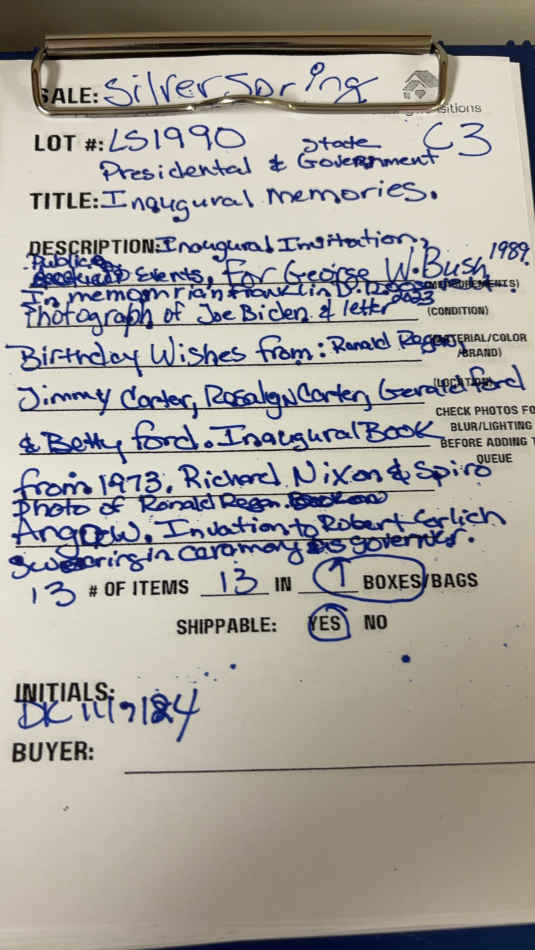 SALE: Silver Spring
sitions
LOT #: LS1990 State C3
Presidental & Government
TITLE: Inaugural Memories.
DESCRIPTION: Inaugural Invitation,
Public
Events, For George W. Bush 1989.
In memorriam Franklin D. (MEASUREMENTS)
Photograph of Joe Biden & letter 2023 (CONDITION)
Birthday Wishes from: Ronald Regan, (MATERIAL/COLOR
/BRAND)
Jimmy Carter, Rosalyn Carter, Gerald Ford (LOCATION)
CHECK PHOTOS FO
& Betty Ford. Inaugural Book BLUR/LIGHTING
BEFORE ADDING T
QUEUE
from 1973. Richard Nixon & Spiro
Photo of Ronald Regan.
Angnew. Invation to Robert Earlich
Swearing in caramony as governer.
13 # OF ITEMS 13 IN 1 BOXES/BAGS
SHIPPABLE: YES NO
INITIALS:
DK
BUYER: